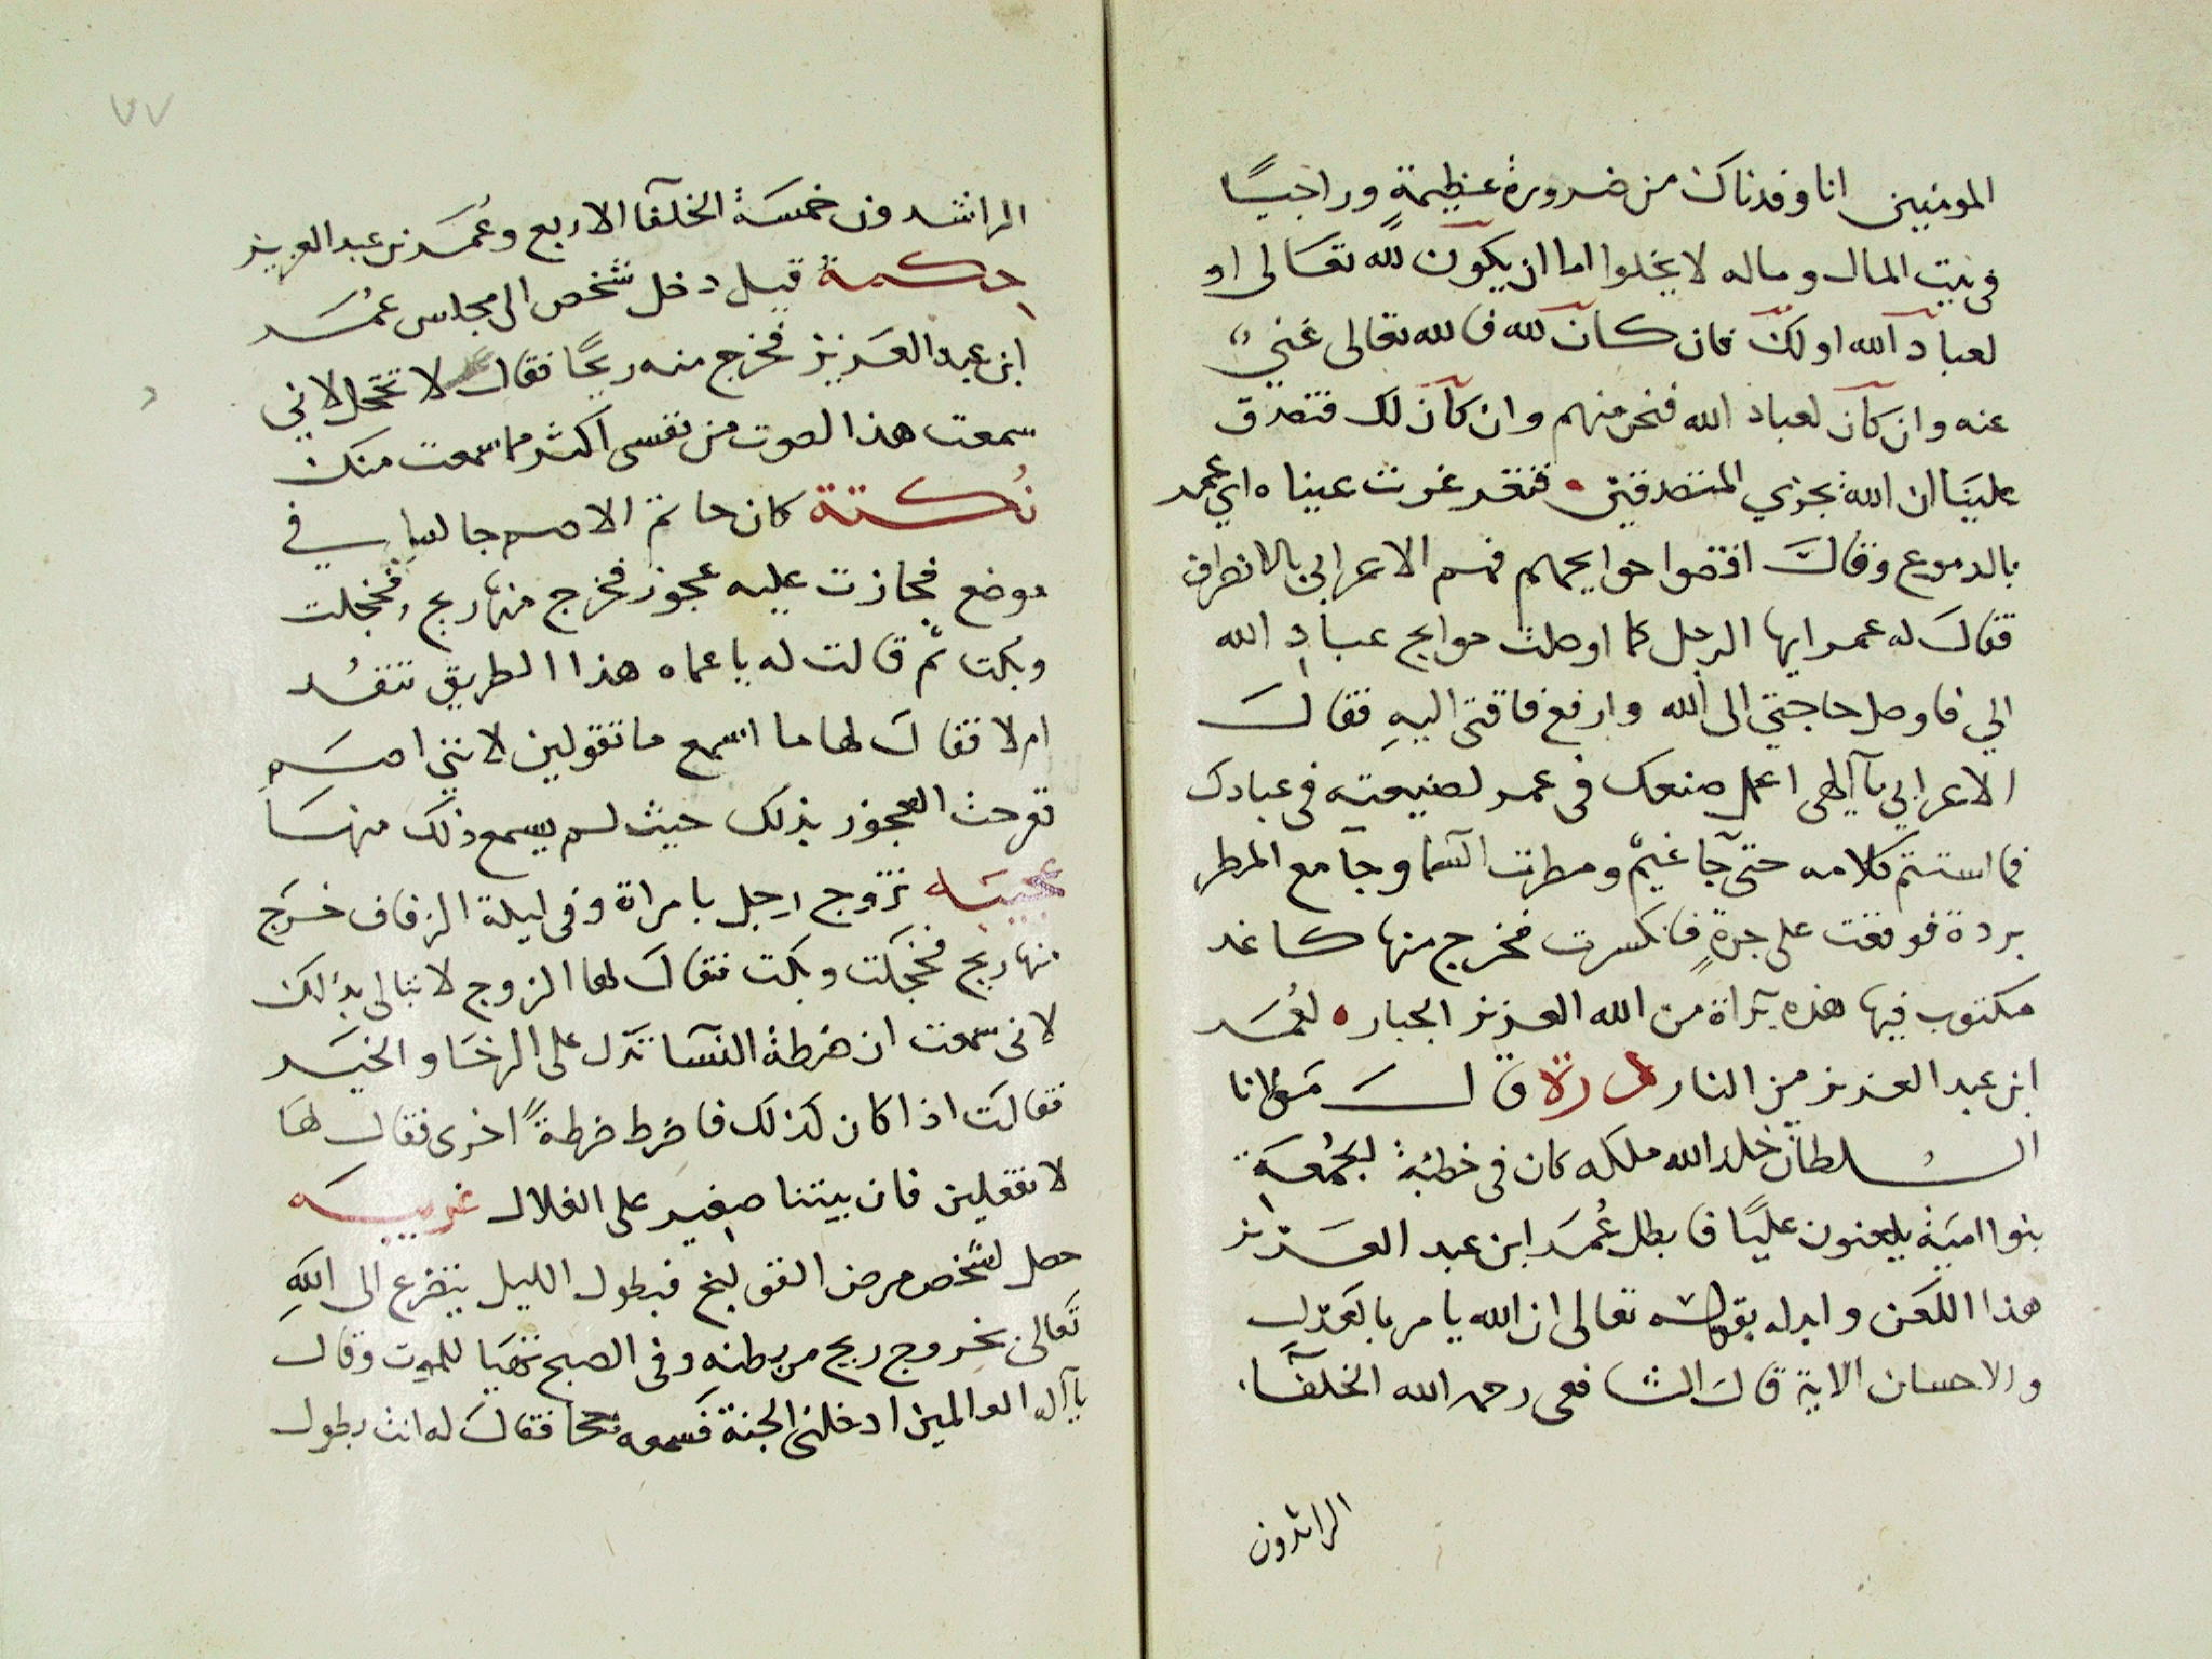 المومنين انا وفدناك من ضرورة عظيمةٍ وراجيًا
في بيت المال وماله لا يخلوا اما ان يكون لله تعالى او
لعباد الله او لك فان كان لله فالله تعالى غني
عنه وان كان لعباد الله فنحن منهم وان كان لك فتصدق
علينا ان الله يجزي المتصدقين فتغرغرت عيناه اي عمر
بالدموع وقال اقضوا حوايجهم فهم الاعرابي بالانصراف
فقال له عمر ايها الرجل كما اوصلت حوايج عباد الله
الي فاوصل حاجتي الى الله وارفع فاقتي اليهِ فقال
الاعرابي يا الهى اعمل صنعك فى عمر لصنيعته فى عبادك
فما استتم كلامه حتى جا غيم ومطرت السما وجا مع المطر
بردة فوقعت على جرةٍ فانكسرت فخرج منها كاغد
مكتوب فيها هذه براة من الله العزيز الجبار لعُمَر
ابن عبد العزيز من النار قال مولانا
السلطان خلد الله ملكه كان فى خطبة الجُمُعَة
بنوا امية يلعنون عليًا فابطل عُمَر ابن عبد العزيز
هذا اللعن وابدله بقوله تعالى ان الله يامر بالعدل
والاحسان الاية قال الشافعى رحمه الله الخلفا
الراشدون
٧٧
الراشدون خمسة الخلفا الاربع وعُمَر بن عبد العزيز
حكمة قيل دخل شخص الى مجلس عمُر
ابن عبد العزيز فخرج منه ريحًا فقال لا تخجل لاني
سمعت هذا الصوت من نفسى اكثر مما سمعت منك
نُكتة كان حاتم الاصم جالسا في
موضع فجازت عليه عجوز فخرج منها ريح فخجلت
وبكت ثم قالت له يا عماه هذا الطريق تنفد
ام لا فقال لها ما اسمع ما تقولين لانني اصم
ففرحت العجوز بذلك حيث لم يسمع ذلك منها
عجيبه تزوج رجل بامراة وفى ليلة الزفاف خرج
منها ريح فخجلت وبكت فقال لها الزوج لا تبالى بذلك
لانى سمعت ان ضرطة النسا تدل على الرخا والخير
فقالت اذا كان كذلك فاضرط ضرطةً اخرى فقال لها
لا تفعلين فان بيتنا صغير على الغلال غريبه
حصل لشخص مرض القولنج فبطول الليل يتضرع الى اللهِ
تعالى بخروج ريح من بطنه وفى الصبح تهيا للموت وقال
يا اله العالمين ادخلنى الجنة فسمعه جحا فقال له انت بطول